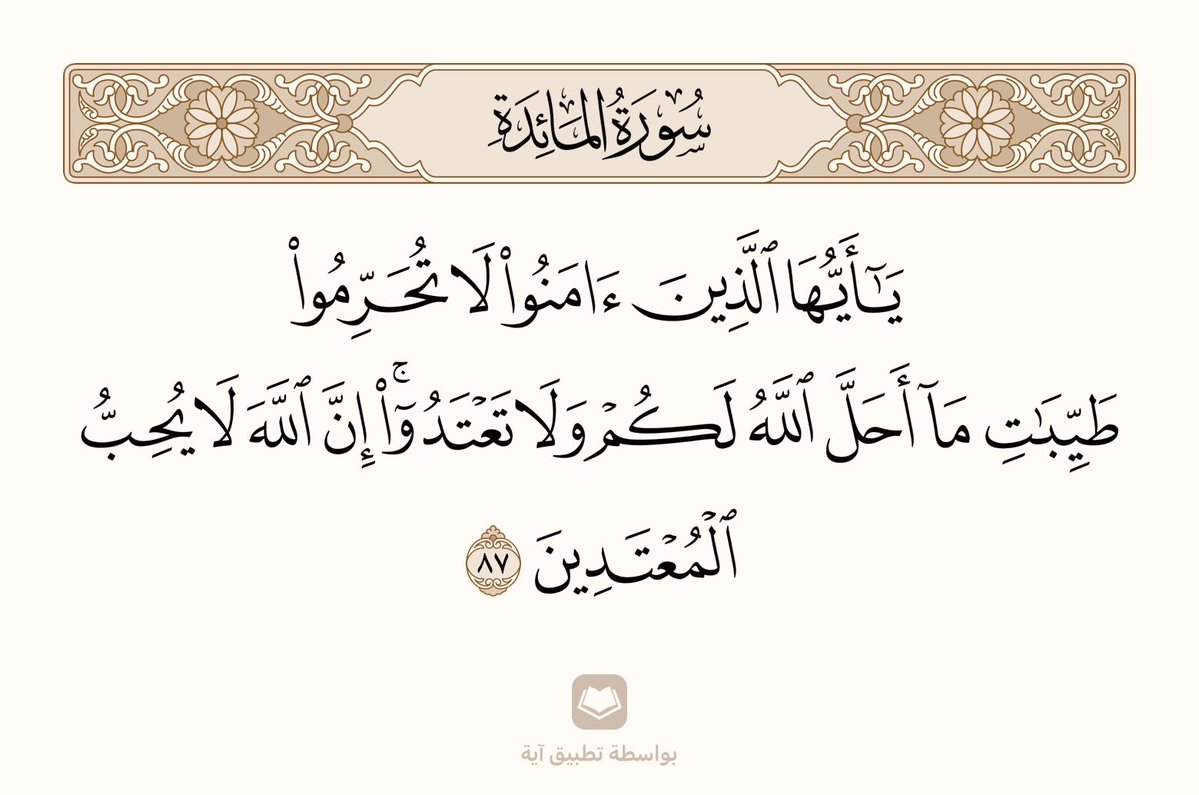 سُورَةُ المَائِدَةِ
يَـٰٓأَيُّهَا ٱلَّذِينَ ءَامَنُوا۟ لَا تُحَرِّمُوا۟
طَيِّبَـٰتِ مَآ أَحَلَّ ٱللَّهُ لَكُمْ وَلَا تَعْتَدُوٓا۟ ۚ إِنَّ ٱللَّهَ لَا يُحِبُّ
ٱلْمُعْتَدِينَ ٨٧
بواسطة تطبيق آية